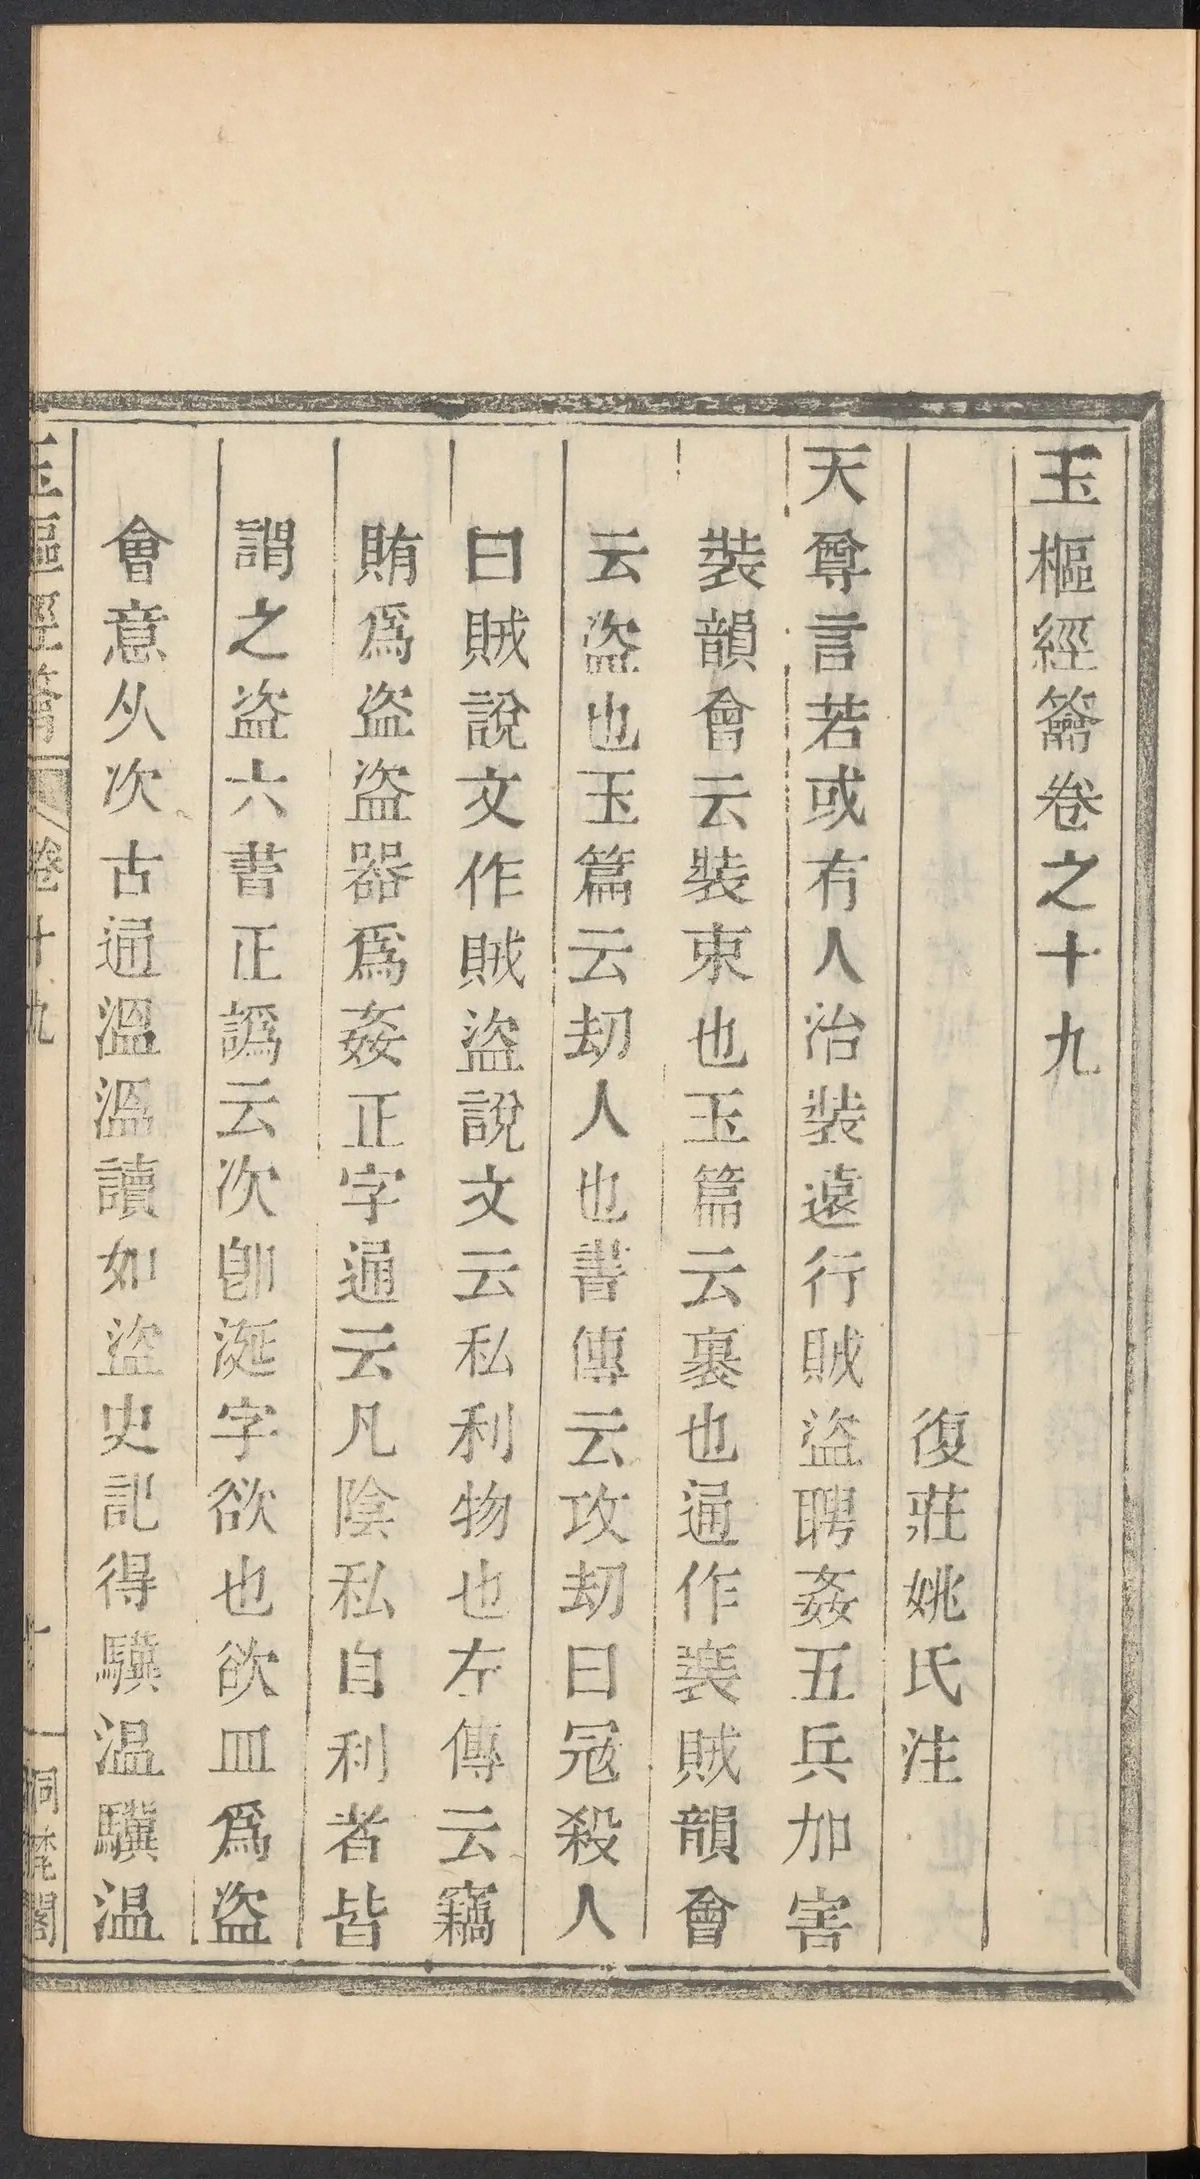 玉樞經籥卷之十九
復莊姚氏注
天尊言若或有人治裝遠行賊盜騁姦五兵加害
裝韻會云裝束也玉篇云裹也通作裝賊韻會
云盜也玉篇云刧人也書傳云攻刧曰冠殺人
曰賊說文作賊盜說文云私利物也左傳云竊
賄爲盜盜器爲姦正字通云凡陰私自利者皆
謂之盜六書正譌云次卽涎字欲也欲皿爲盜
會意从次古通溫溫讀如盜史記得驥溫驥溫
玉樞經籥
卷十九
一
洞梵閣